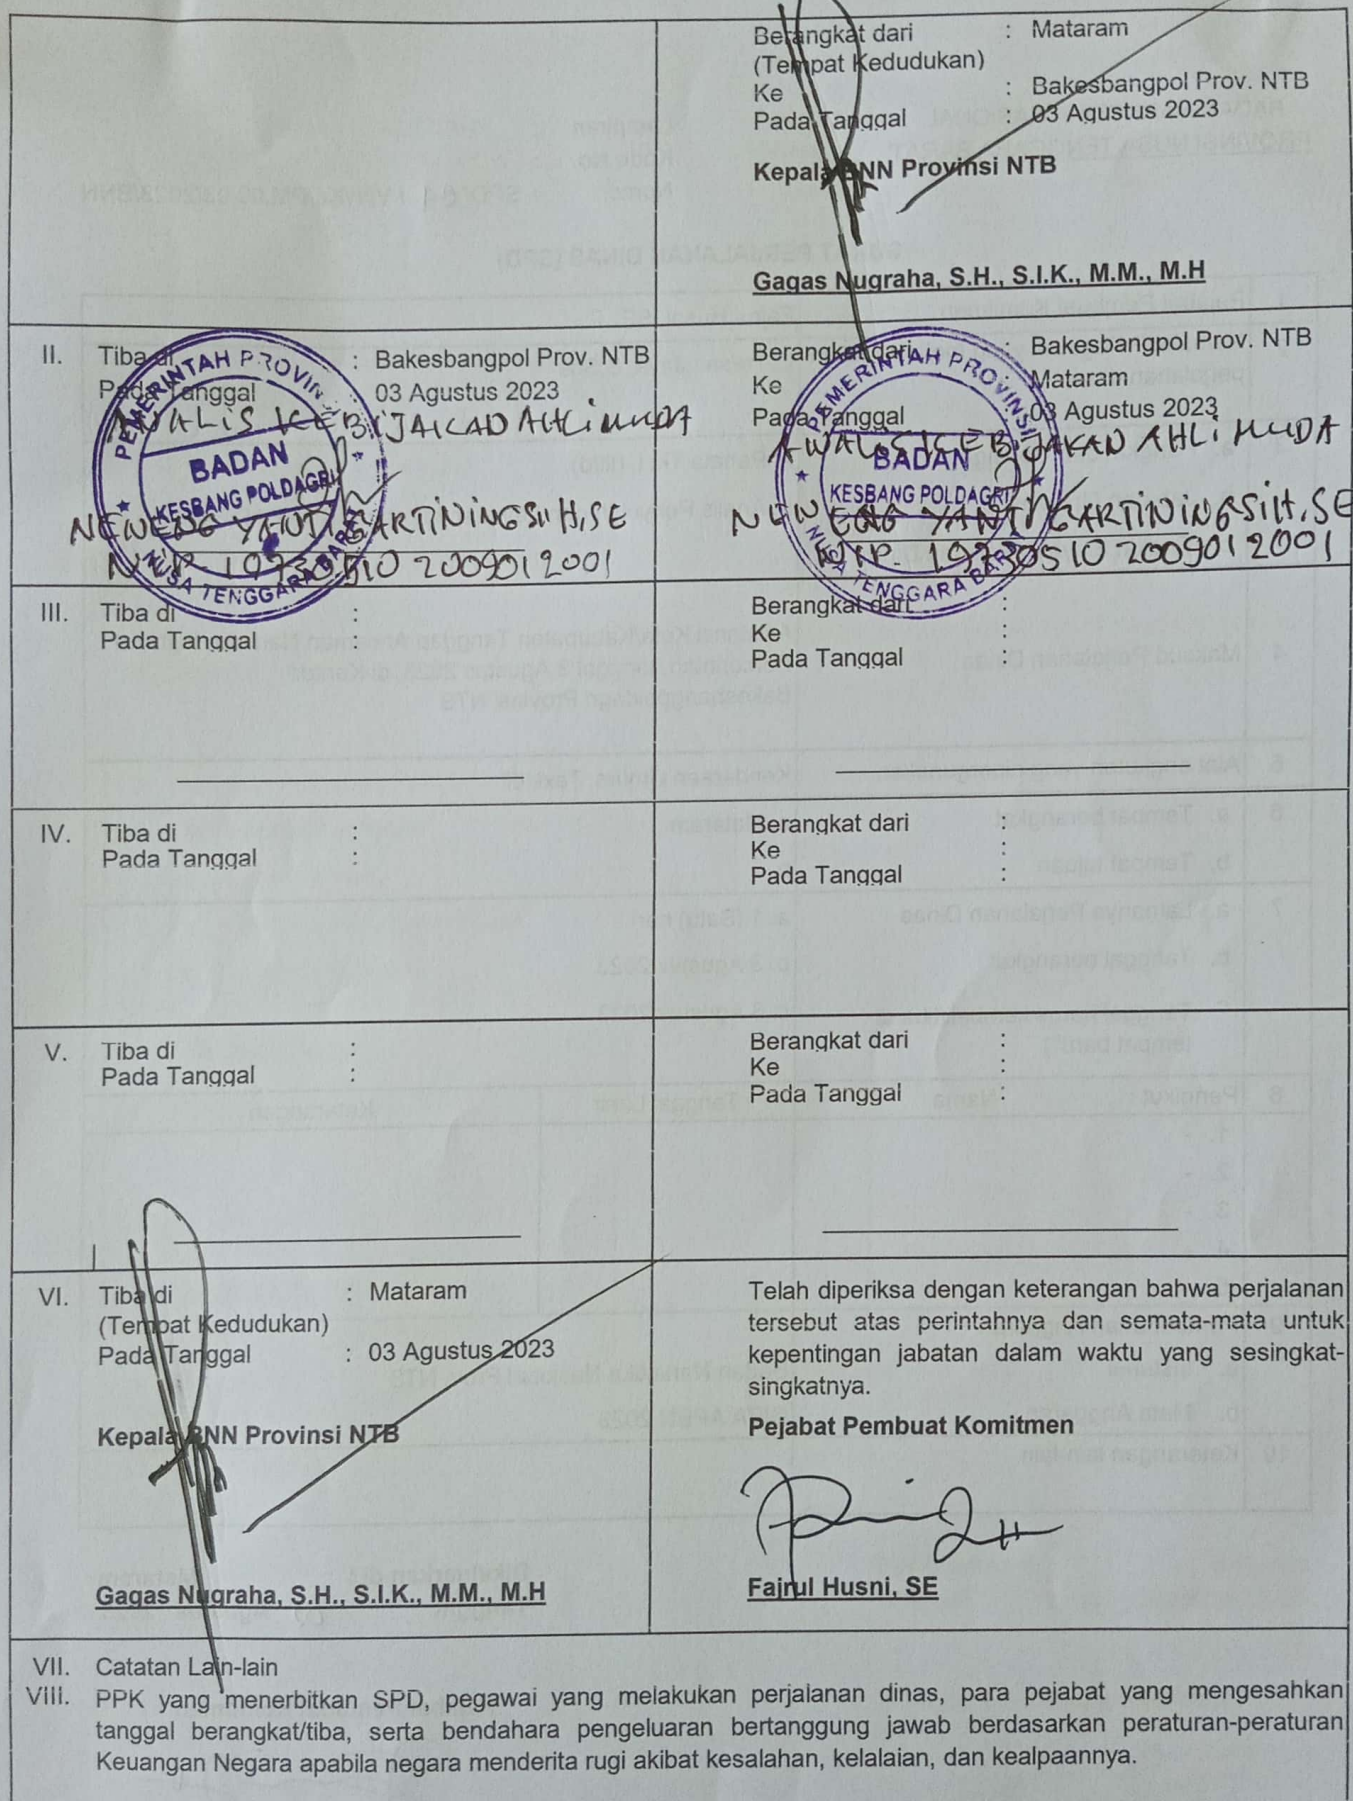 Berangkat dari : Mataram
(Tempat Kedudukan)
Ke : Bakesbangpol Prov. NTB
Pada Tanggal : 03 Agustus 2023
Kepala BNN Provinsi NTB
Gagas Nugraha, S.H., S.I.K., M.M., M.H
II. Tiba di : Bakesbangpol Prov. NTB
Pada Tanggal 03 Agustus 2023
ANALIS KEBIJAKAN AHLI MUDA
PEMERINTAH PROVINSI
BADAN
KESBANG POLDAGRI
NUSA TENGGARA BARAT
NENENG YANTI KARTININGSIH, SE
NIP. 19730510 200901 2001
Berangkat dari : Bakesbangpol Prov. NTB
Ke : Mataram
Pada Tanggal 03 Agustus 2023
ANALIS KEBIJAKAN AHLI MUDA
PEMERINTAH PROVINSI
BADAN
KESBANG POLDAGRI
NUSA TENGGARA BARAT
NENENG YANTI KARTININGSIH, SE
NIP. 19730510 200901 2001
III. Tiba di :
Pada Tanggal :
Berangkat dari :
Ke :
Pada Tanggal :
IV. Tiba di :
Pada Tanggal :
Berangkat dari :
Ke :
Pada Tanggal :
V. Tiba di :
Pada Tanggal :
Berangkat dari :
Ke :
Pada Tanggal :
VI. Tiba di : Mataram
(Tempat Kedudukan)
Pada Tanggal : 03 Agustus 2023
Kepala BNN Provinsi NTB
Gagas Nugraha, S.H., S.I.K., M.M., M.H
Telah diperiksa dengan keterangan bahwa perjalanan
tersebut atas perintahnya dan semata-mata untuk
kepentingan jabatan dalam waktu yang sesingkat-
singkatnya.
Pejabat Pembuat Komitmen
Fajrul Husni, SE
VII. Catatan Lain-lain
VIII. PPK yang menerbitkan SPD, pegawai yang melakukan perjalanan dinas, para pejabat yang mengesahkan
tanggal berangkat/tiba, serta bendahara pengeluaran bertanggung jawab berdasarkan peraturan-peraturan
Keuangan Negara apabila negara menderita rugi akibat kesalahan, kelalaian, dan kealpaannya.